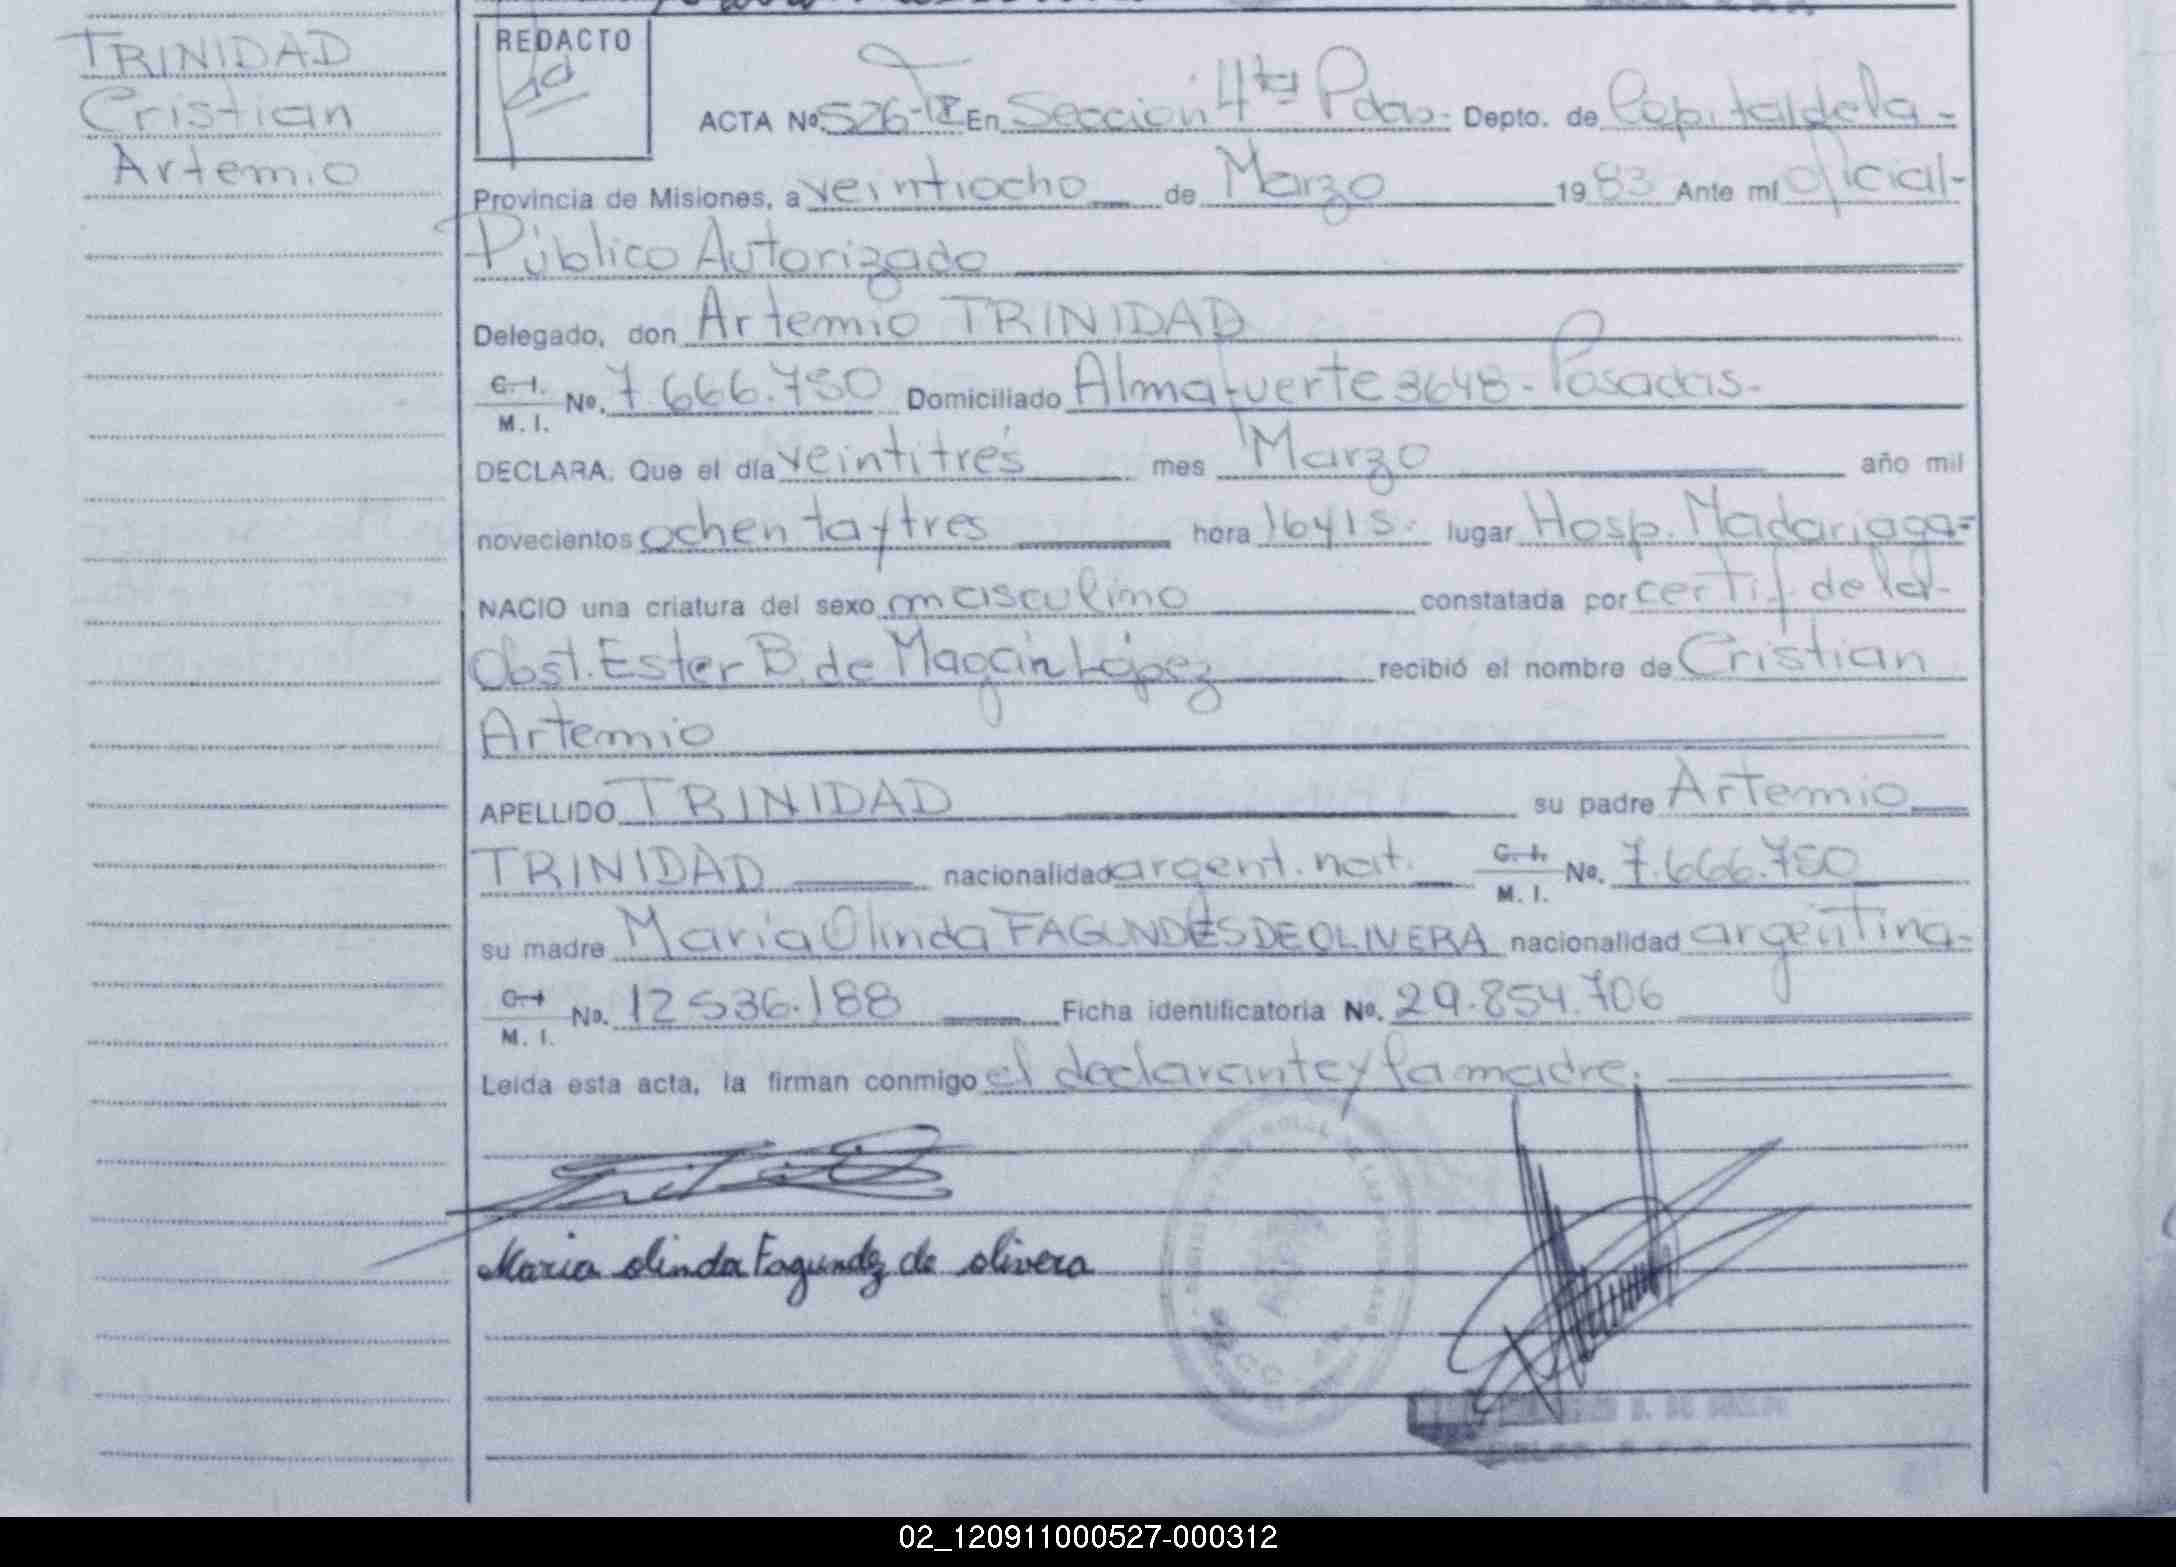 TRINIDAD
Cristian
Artemio
REDACTO
ACTA Nº 526-II En Sección 4ta Pdas. Depto. de Capital de la-
Provincia de Misiones, a veintiocho de Marzo 1983 Ante mí oficial-
Público Autorizado
Delegado, don Artemio TRINIDAD
C. I. M. I. Nº. 7.666.750 Domiciliado Almafuerte 3648-Posadas-
DECLARA. Que el día veintitrés mes Marzo año mil
novecientos ochenta y tres hora 16 y 15. lugar Hosp. Madariaga=
NACIO una criatura del sexo masculino constatada por certif. de la-
Obst. Ester B. de Magán López recibió el nombre de Cristian
Artemio
APELLIDO TRINIDAD su padre Artemio
TRINIDAD nacionalidad argent. nat. C. I. M. I. Nº. 7.666.750
su madre María Olinda FAGUNDES DE OLIVERA nacionalidad argentina-
C. I. M. I. Nº. 12536.188 Ficha identificatoria Nº. 29.854.706
Leída esta acta, la firman conmigo el declarante y la madre.
Maria olinda Fagundez de olivera
02_120911000527-000312